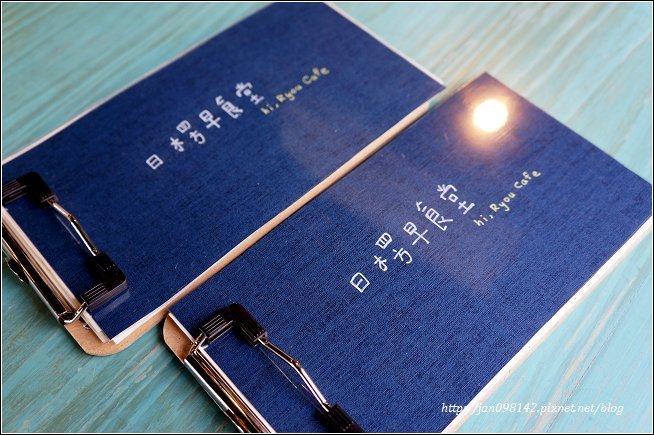 日楞早食堂
hi, Ryou Cafe
日楞早食堂
hi, Ryou Cafe
http://jan098142.pixnet.net/blog